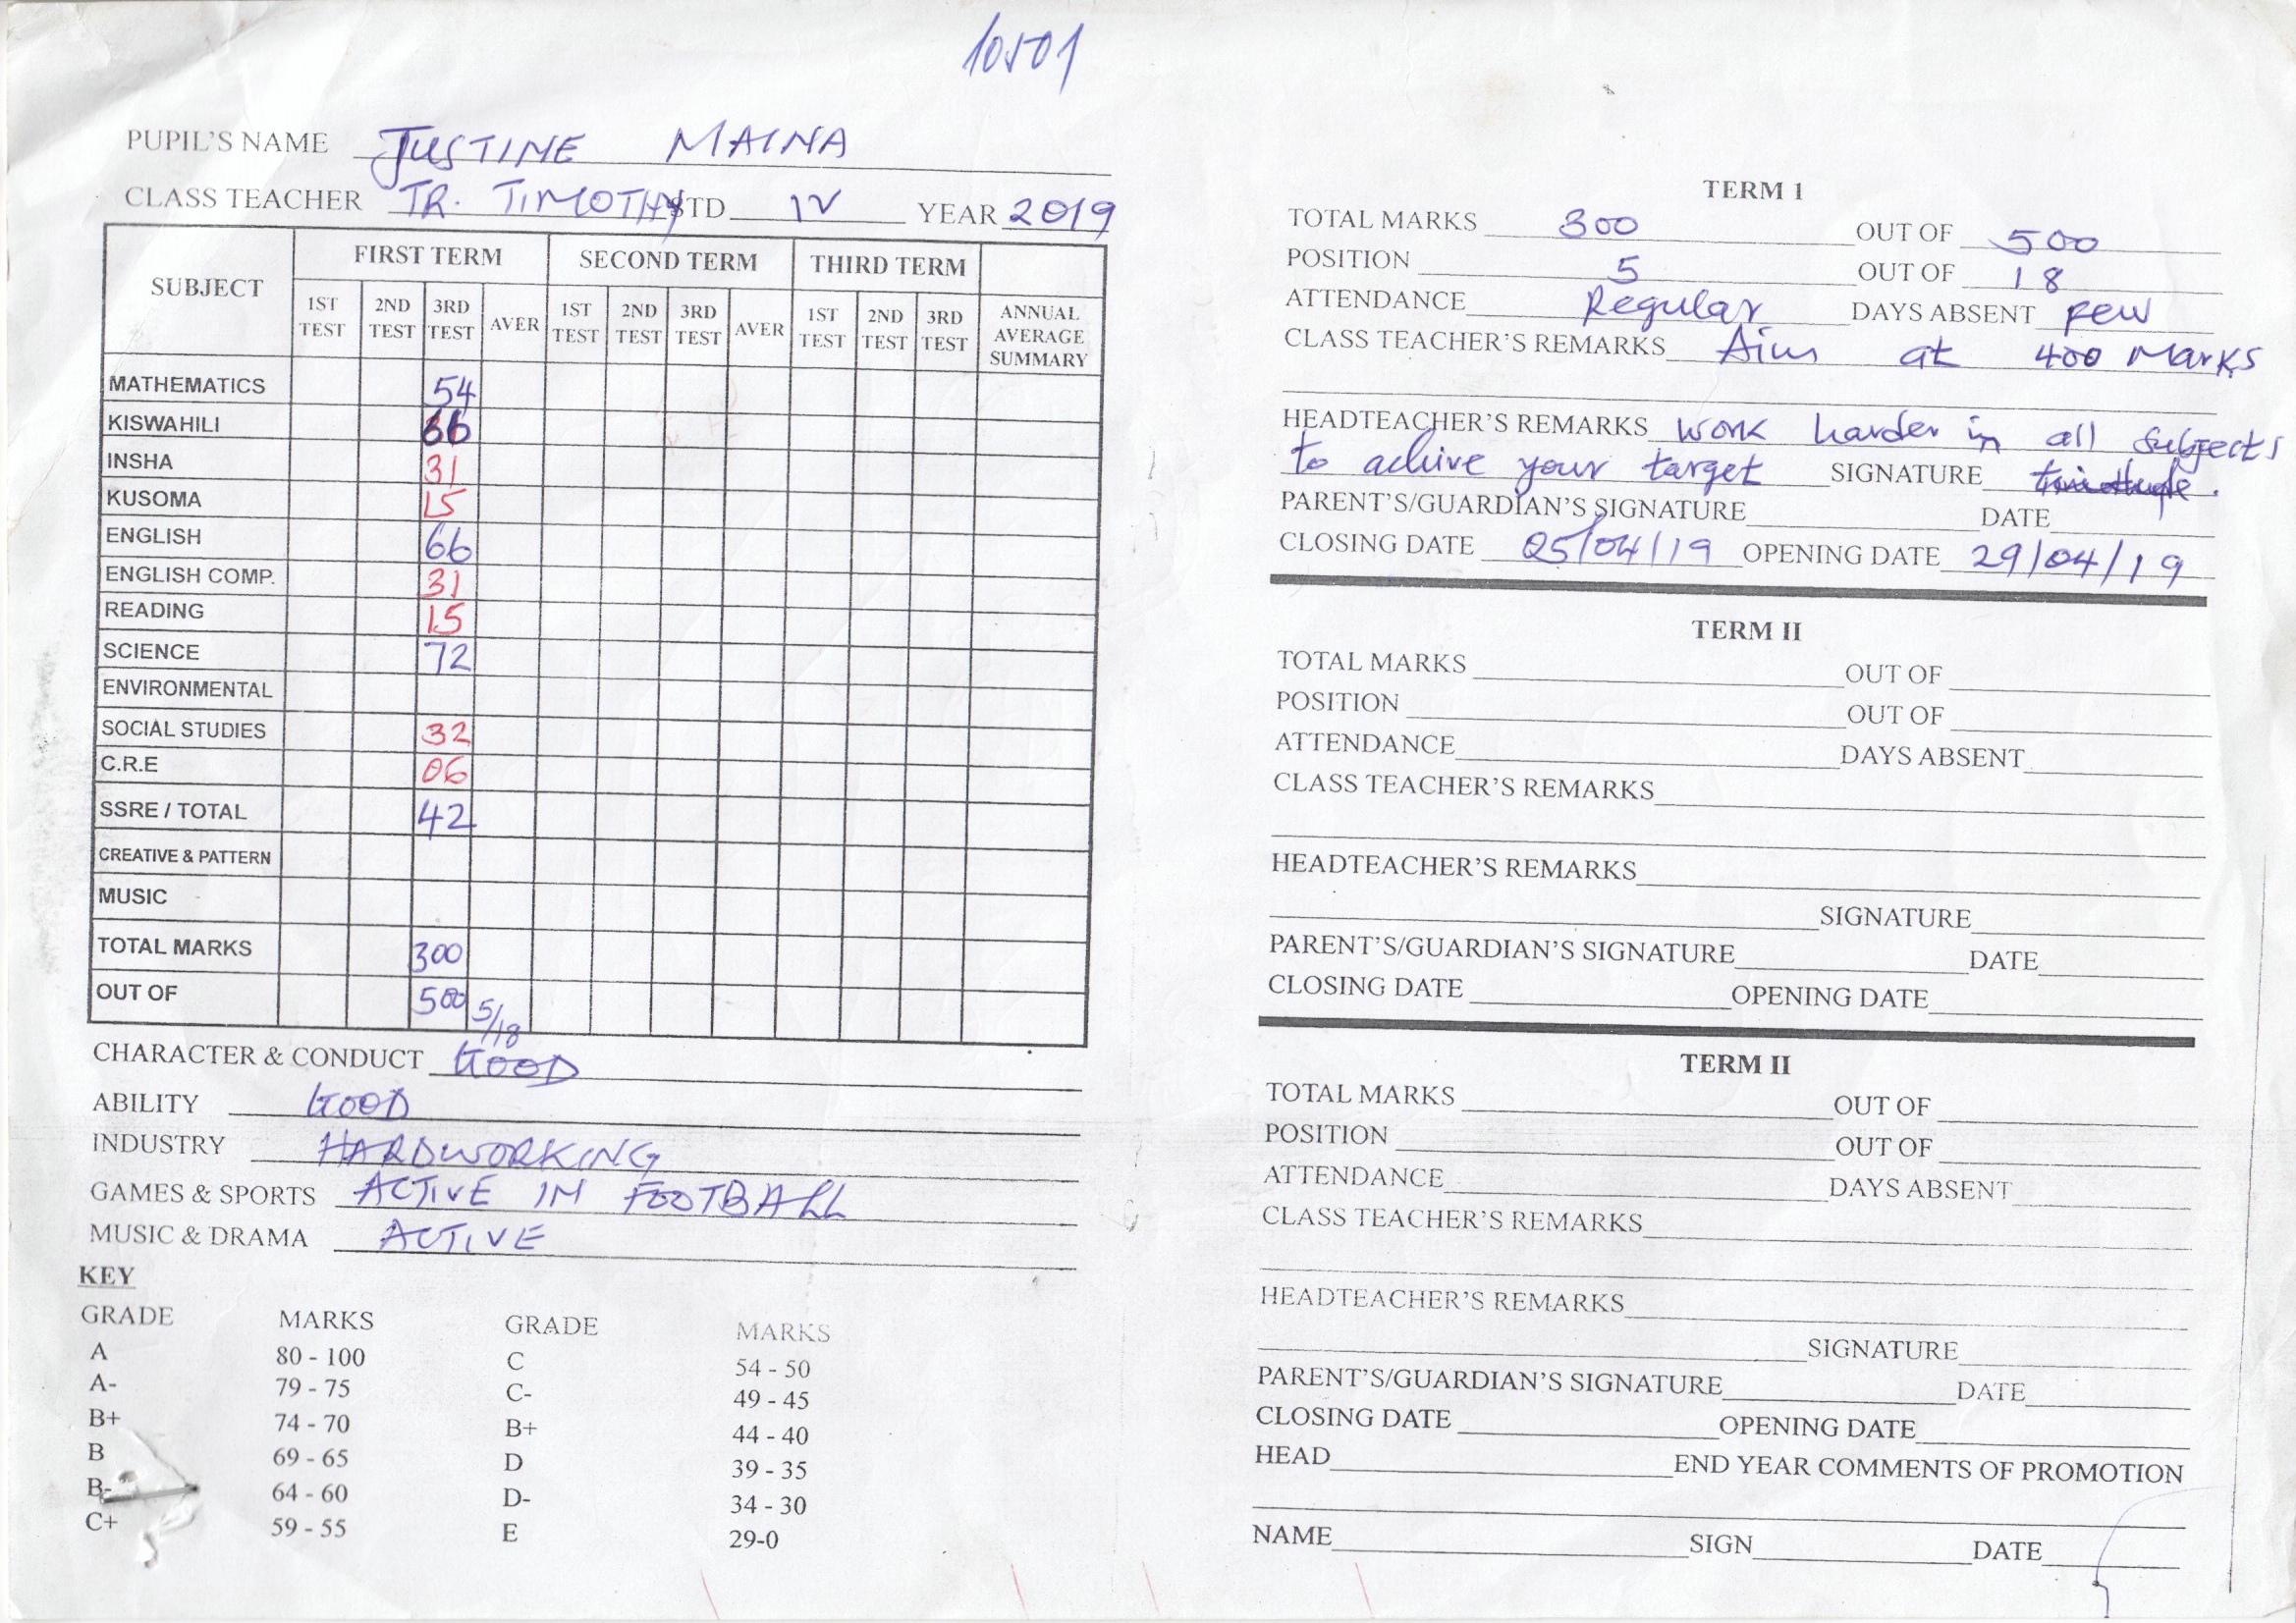 10501
PUPIL'S NAME JUSTINE MAINA
CLASS TEACHER TR. TIMOTHY STD IV YEAR 2019
SUBJECT FIRST TERM SECOND TERM THIRD TERM
1ST TEST 2ND TEST 3RD TEST AVER 1ST TEST 2ND TEST 3RD TEST AVER 1ST TEST 2ND TEST 3RD TEST ANNUAL AVERAGE SUMMARY
MATHEMATICS 54
KISWAHILI 66
INSHA 31
KUSOMA 15
ENGLISH 66
ENGLISH COMP. 31
READING 15
SCIENCE 72
ENVIRONMENTAL
SOCIAL STUDIES 32
C.R.E 06
SSRE / TOTAL 42
CREATIVE & PATTERN
MUSIC
TOTAL MARKS 300
OUT OF 500 5/18
CHARACTER & CONDUCT GOOD
ABILITY GOOD
INDUSTRY HARDWORKING
GAMES & SPORTS ACTIVE IN FOOTBALL
MUSIC & DRAMA ACTIVE
KEY
GRADE MARKS GRADE MARKS
A 80 - 100 C 54 - 50
A- 79 - 75 C- 49 - 45
B+ 74 - 70 B+ 44 - 40
B 69 - 65 D 39 - 35
B- 64 - 60 D- 34 - 30
C+ 59 - 55 E 29-0
TERM 1
TOTAL MARKS 300 OUT OF 500
POSITION 5 OUT OF 18
ATTENDANCE Regular DAYS ABSENT Few
CLASS TEACHER'S REMARKS Aim at 400 Marks
HEADTEACHER'S REMARKS work harder in all subjects
to achive your target SIGNATURE
PARENT'S/GUARDIAN'S SIGNATURE DATE
CLOSING DATE 25/04/19 OPENING DATE 29/04/19
TERM II
TOTAL MARKS OUT OF
POSITION OUT OF
ATTENDANCE DAYS ABSENT
CLASS TEACHER'S REMARKS
HEADTEACHER'S REMARKS
SIGNATURE
PARENT'S/GUARDIAN'S SIGNATURE DATE
CLOSING DATE OPENING DATE
TERM II
TOTAL MARKS OUT OF
POSITION OUT OF
ATTENDANCE DAYS ABSENT
CLASS TEACHER'S REMARKS
HEADTEACHER'S REMARKS
SIGNATURE
PARENT'S/GUARDIAN'S SIGNATURE DATE
CLOSING DATE OPENING DATE
HEAD END YEAR COMMENTS OF PROMOTION
NAME SIGN DATE